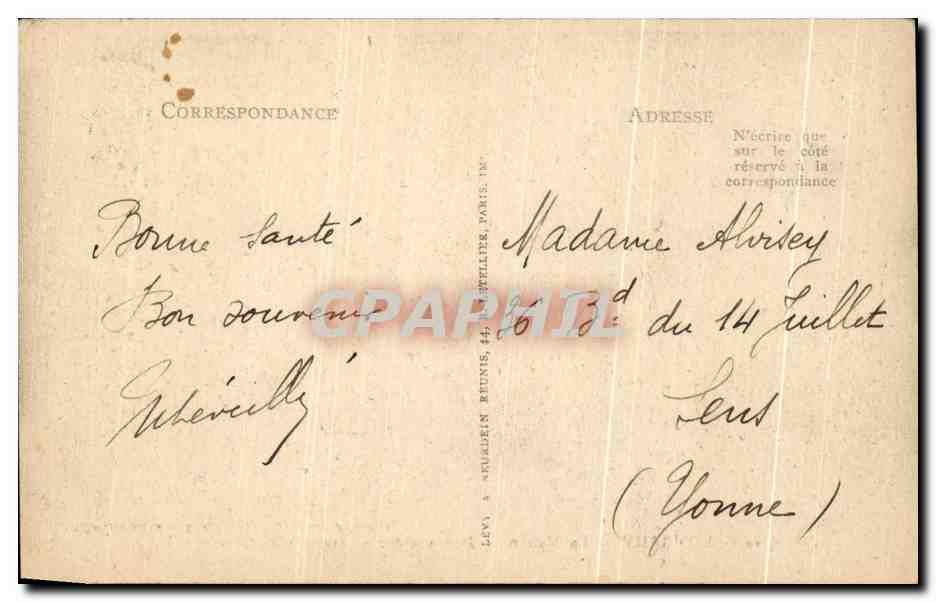 CORRESPONDANCE
Bonne santé
Bon souvenir
LEVY & NEURDEIN RÉUNIS, 44, LETELLIER, PARIS. IMP
ADRESSE
N'écrire que
sur le côté
réservé à la
correspondance
Madame Alvisey
36 Bd du 14 Juillet
Sens
(Yonne)
CPAPHIL